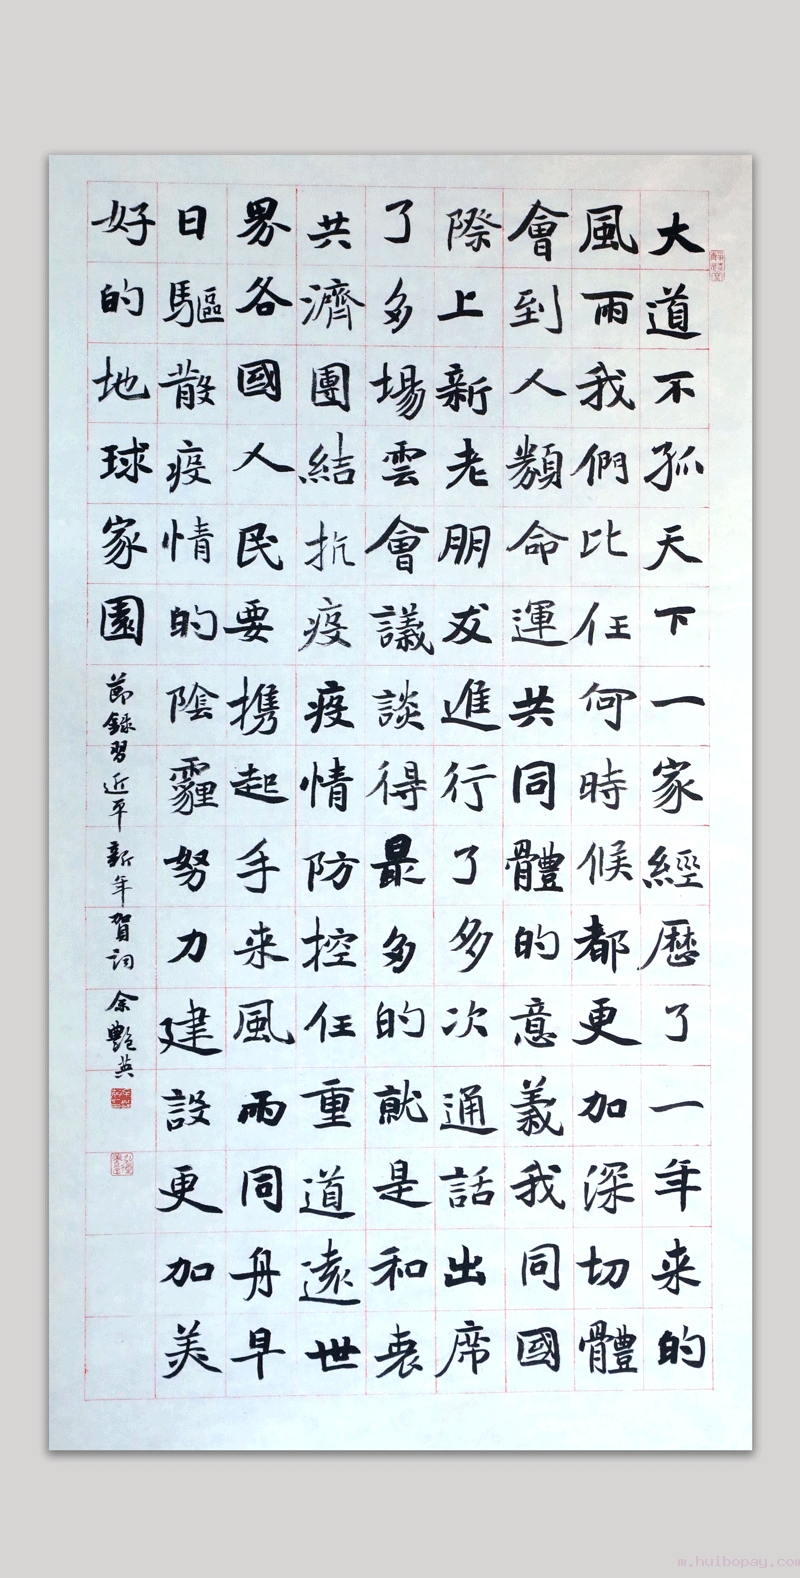 大道不孤天下一家經歷了一年来的
風雨我們比任何時候都更加深切體
會到人類命運共同體的意義我同國
際上新老朋友進行了多次通話出席
了多場雲會議談得最多的就是和衷
共濟團結抗疫疫情防控任重道遠世
界各國人民要携起手来風雨同舟早
日驅散疫情的陰霾努力建設更加美
好的地球家園
節錄習近平新年賀詞 余艷英
m.huibopay.com